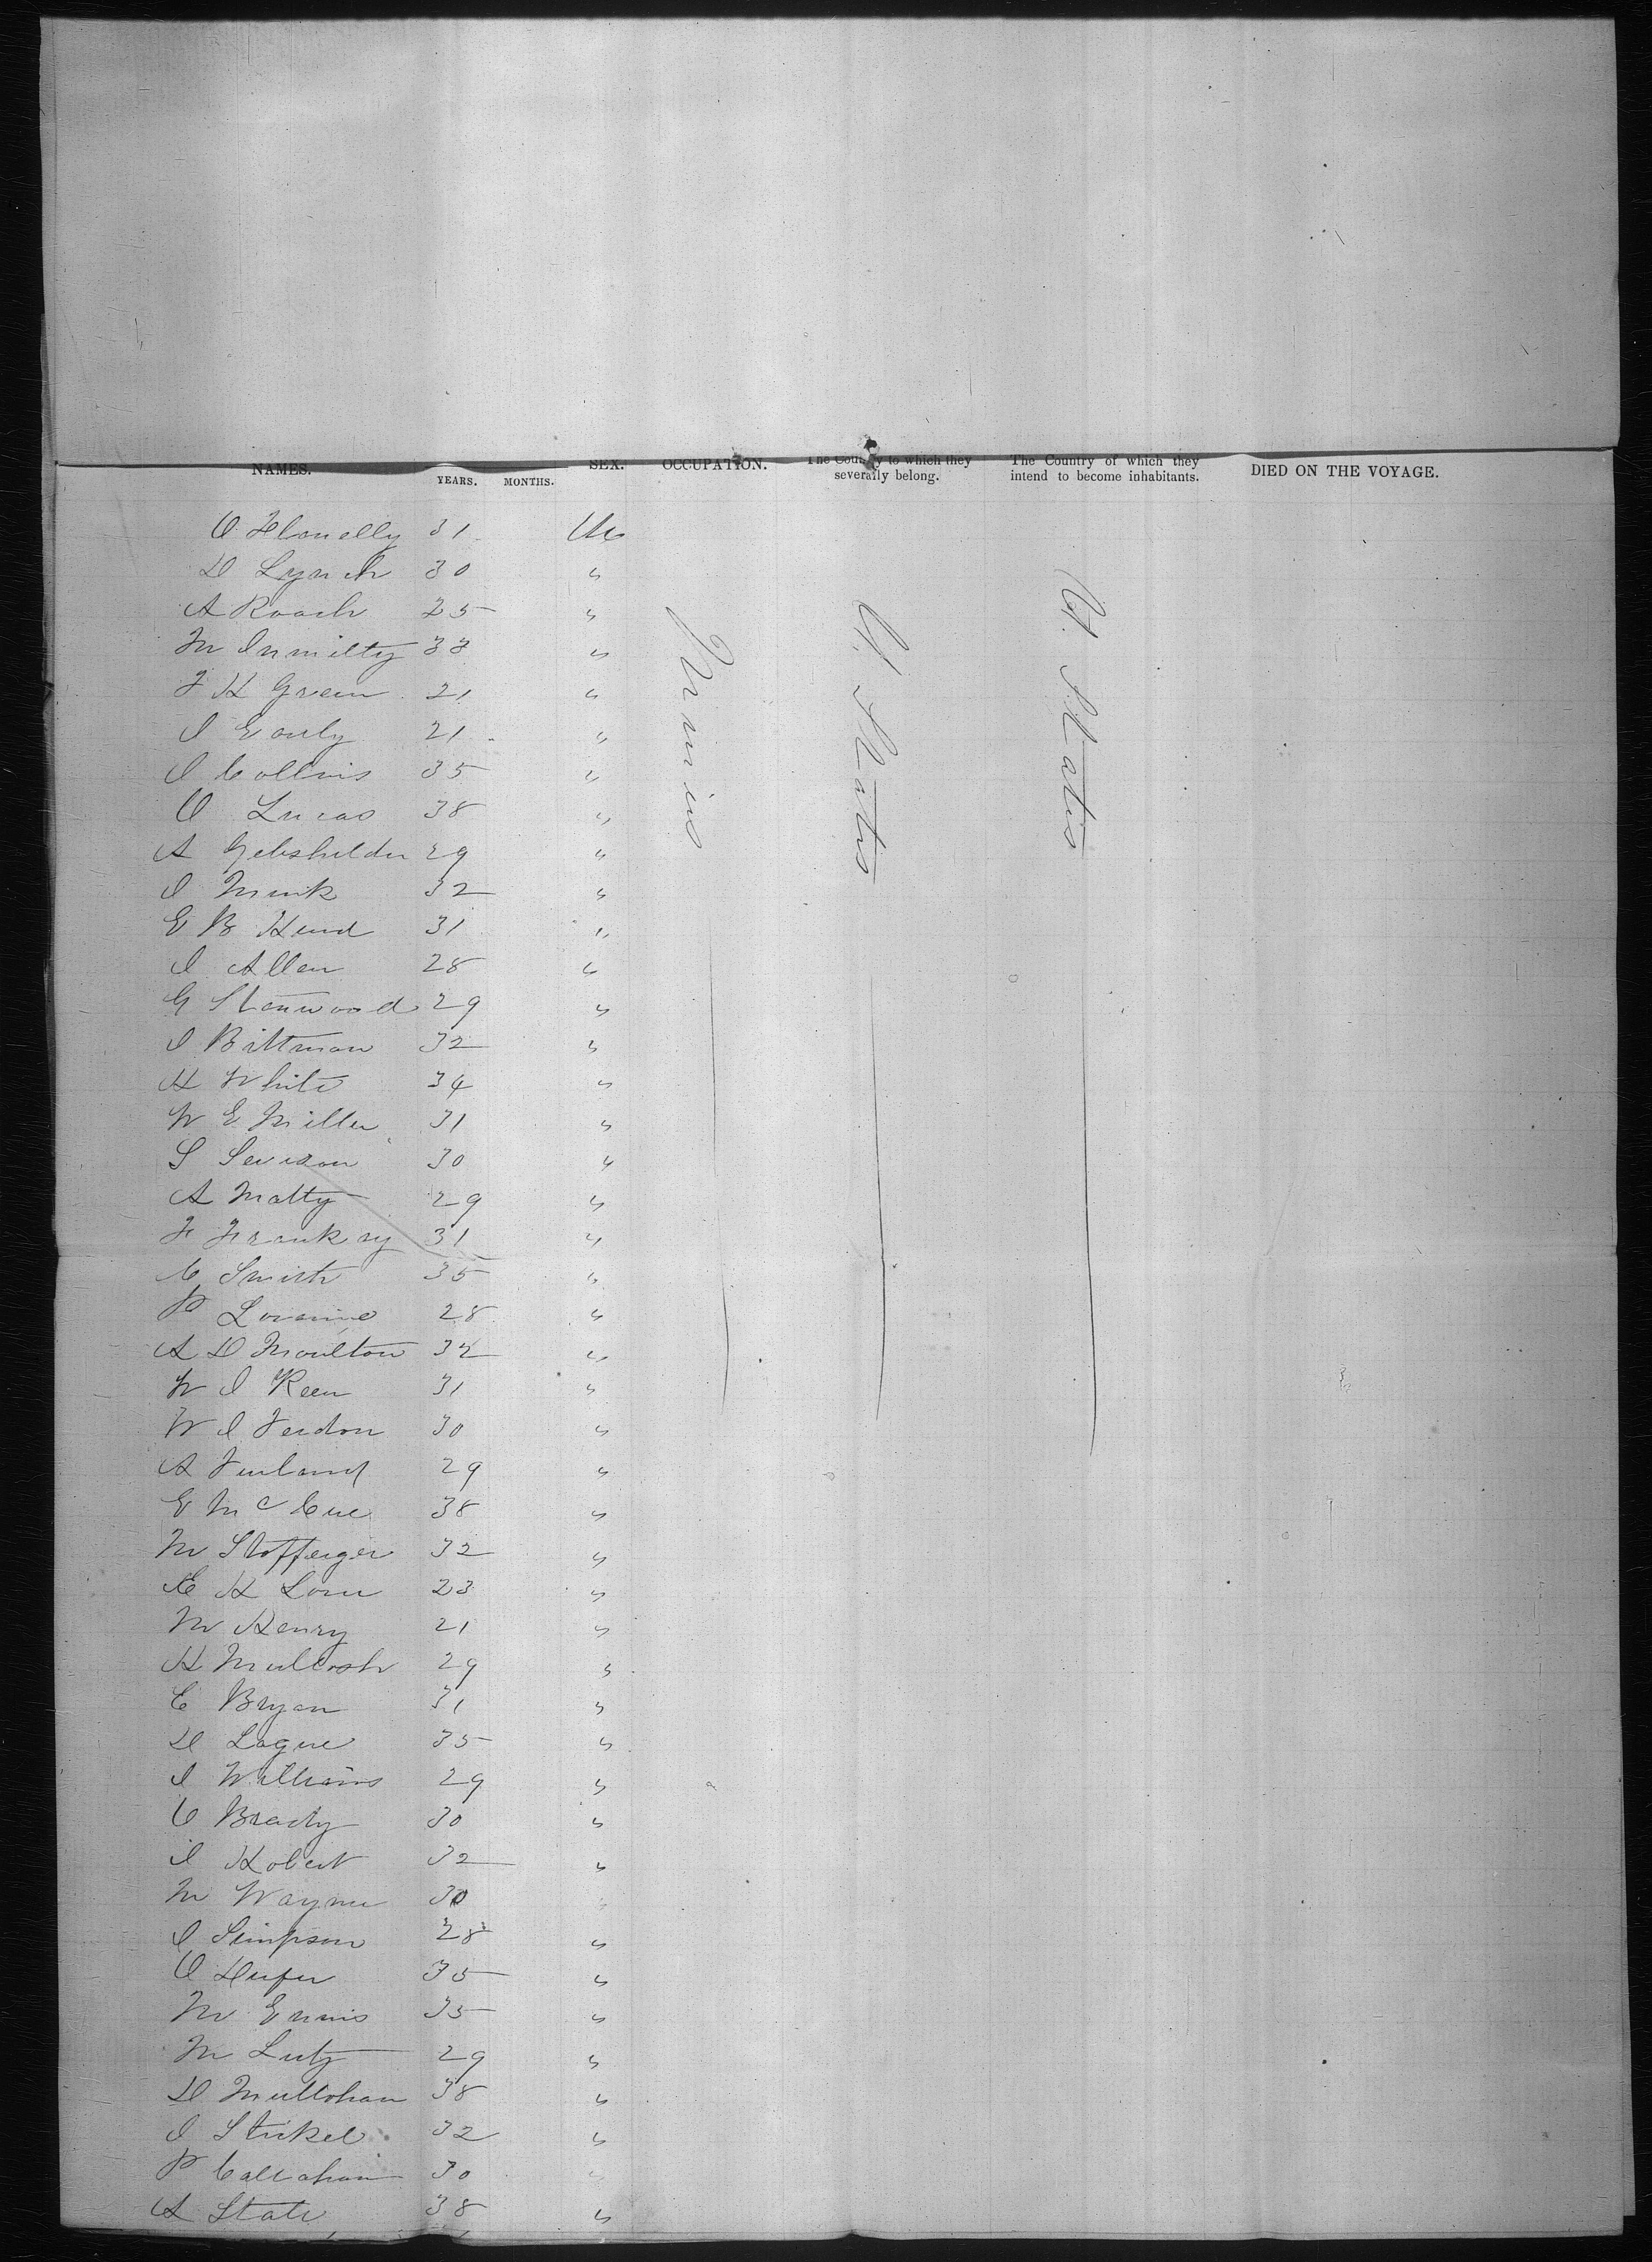 NAMES. YEARS. MONTHS. SEX. OCCUPATION. The Country to which they severally belong. The Country of which they intend to become inhabitants. DIED ON THE VOYAGE.
Miners
U. States
U. States
31 M
D Lynch 30 "
A Roach 25 "
M 33 "
F H Green 21 "
J Early 21 "
J Collins 35 "
C Lucas 38 "
A 29 "
J Mink 32 "
E B 31 "
J Allen 28 "
G Stanwood 29 "
J Bittman 32 "
H White 34 "
W E Miller 31 "
S 30 "
A Matty 29 "
F 31 "
C Smith 35 "
P 28 "
A D Moulton 32 "
W J Keen 31 "
W J 30 "
A 29 "
E McCue 38 "
M 32 "
E H 23 "
M Henry 21 "
H 29 "
C Bryan 31 "
D Logue 35 "
J Williams 29 "
C Brady 30 "
J 32 "
M Wayne 30 "
J Simpson 28 "
C 35 "
M Ennis 35 "
M Lutz 29 "
D 38 "
J Stickel 32 "
P Callahan 30 "
A State 38 "